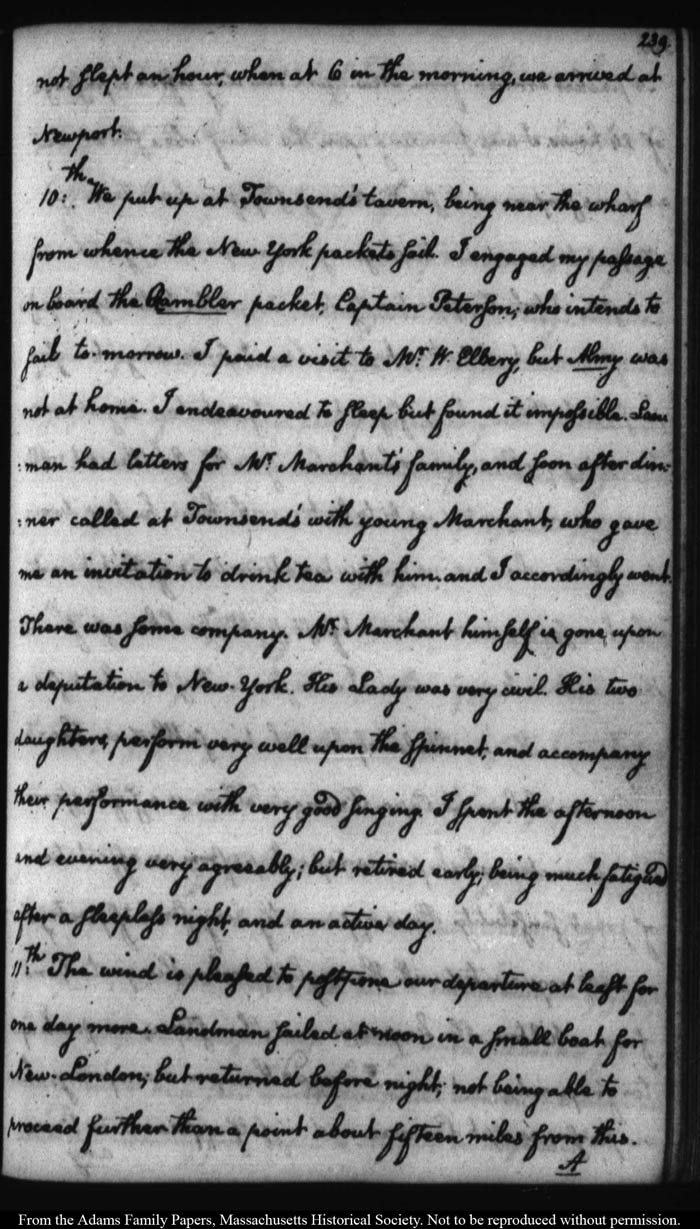 239
not slept an hour, when at 6 in the morning, we arrived at
Newport.
10:th We put up at Townsend's tavern, being near the wharf
from whence the New York packets sail. I engaged my passage
on board the Rambler packet, Captain Peterson; who intends to
sail to-morrow. I paid a visit to Mr. W. Ellery, but Almy was
not at home. I endeavoured to sleep but found it impossible. Lan
:man had letters for Mr. Marchant's family, and soon after din:
:ner called at Townsend's with young Marchant, who gave
me an invitation to drink tea with him. and I accordingly went.
There was some company. Mr. Marchant himself is gone upon
a deputation to New-York. His Lady was very civil. His two
daughters, perform very well upon the spinnet, and accompany
their performance with very good singing. I spent the afternoon
and evening very agreeably; but retired early; being much fatigued
after a sleepless night, and an active day.
11:th The wind is pleased to postpone our departure at least for
one day more. Landman sailed at noon in a small boat for
New-London; but returned before night; not being able to
proceed further than a point about fifteen miles from this.
A
From the Adams Family Papers, Massachusetts Historical Society. Not to be reproduced without permission.